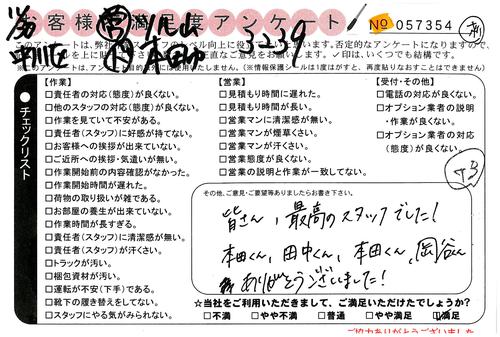 お客様満足度アンケート
No 057354
3-2-39
チェックリスト
【作業】
□責任者の対応(態度)が良くない。
□他のスタッフの対応(態度)が良くない。
□作業を見ていて不安がある。
□責任者(スタッフ)に好感が持てない。
□お客様への挨拶が出来ていない。
□ご近所への挨拶・気遣いが無い。
□作業開始前の内容確認がなかった。
□作業開始時間が遅れた。
□荷物の取り扱いが雑である。
□お部屋の養生が出来ていない。
□作業時間が長すぎる。
□責任者(スタッフ)に清潔感が無い。
□責任者(スタッフ)が汗くさい。
□トラックが汚い。
□梱包資材が汚い。
□運転が不安(下手)である。
□靴下の履き替えをしてない。
□スタッフにやる気がみられない。
【営業】
□見積もり時間に遅れた。
□見積もり時間が長い。
□営業マンに清潔感が無い。
□営業マンが煙草くさい。
□営業マンが汗くさい。
□営業態度が良くない。
□営業の説明と作業が一致してない。
【受付・その他】
□電話の対応が良くない。
□オプション業者の説明
・作業が良くない。
□オプション業者の対応
(態度)が良くない。
その他、ご意見・ご要望等ありましたらお書き下さい。
皆さん、最高のスタッフでした!
本田くん、田中くん、本田くん、岡谷くん
ありがとうございました!
☆当社をご利用いただきまして、ご満足いただけたでしょうか?
□不満 □やや不満 □普通 □やや満足 ☑満足
ご協力ありがとうございました